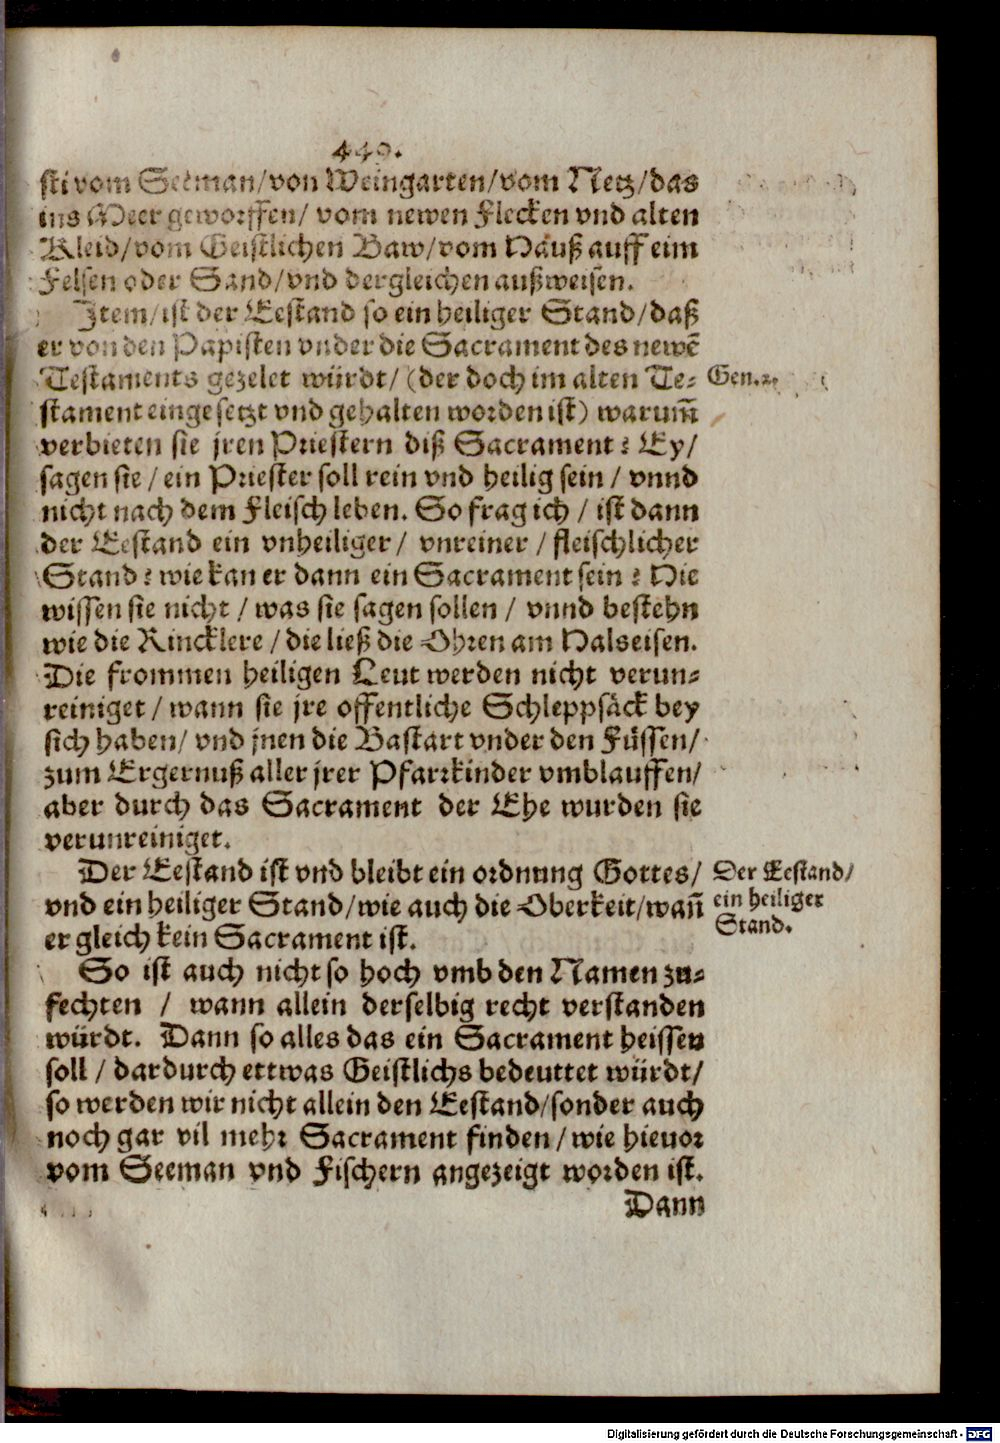 449.
sti vom Seeman/von Weingarten/vom Netz/das
ins Meer geworffen/ vom newen Flecken vnd alten
Kleid/vom Geistlichen Baw/vom Hauß auff eim
Felsen oder Sand/vnd dergleichen außweisen.
Item/ist der Eestand so ein heiliger Stand/daß
er von den Papisten vnder die Sacrament des newẽ
Testaments gezelet würdt/ (der doch im alten Te-
Gen.2.
stament eingesetzt vnd gehalten worden ist) warum̃
verbieten sie jren Priestern diß Sacrament? Ey/
sagen sie / ein Priester soll rein vnd heilig sein / vnnd
nicht nach dem Fleisch leben. So frag ich / ist dann
der Eestand ein vnheiliger/ vnreiner / fleischlicher
Stand? wie kan er dann ein Sacrament sein? Hie
wissen sie nicht / was sie sagen sollen / vnnd bestehn
wie die Rincklere / die ließ die Ohren am Halseisen.
Die frommen heiligen Leut werden nicht verun-
reiniget / wann sie jre offentliche Schleppsäck bey
sich haben/ vnd jnen die Bastart vnder den Füssen/
zum Ergernuß aller jrer Pfarrkinder vmblauffen/
aber durch das Sacrament der Ehe wurden sie
verunreiniget.
Der Eestand ist vnd bleibt ein ordnung Gottes/
vnd ein heiliger Stand/wie auch die Oberkeit/wañ
er gleich kein Sacrament ist.
Der Eestand/
ein heiliger
Stand.
So ist auch nicht so hoch vmb den Namen zu-
fechten / wann allein derselbig recht verstanden
würdt. Dann so alles das ein Sacrament heissen
soll / dardurch ettwas Geistlichs bedeuttet würdt/
so werden wir nicht allein den Eestand/sonder auch
noch gar vil mehr Sacrament finden / wie hieuor
vom Seeman vnd Fischern angezeigt worden ist.
Dann
Digitalisierung gefördert durch die Deutsche Forschungsgemeinschaft - DFG